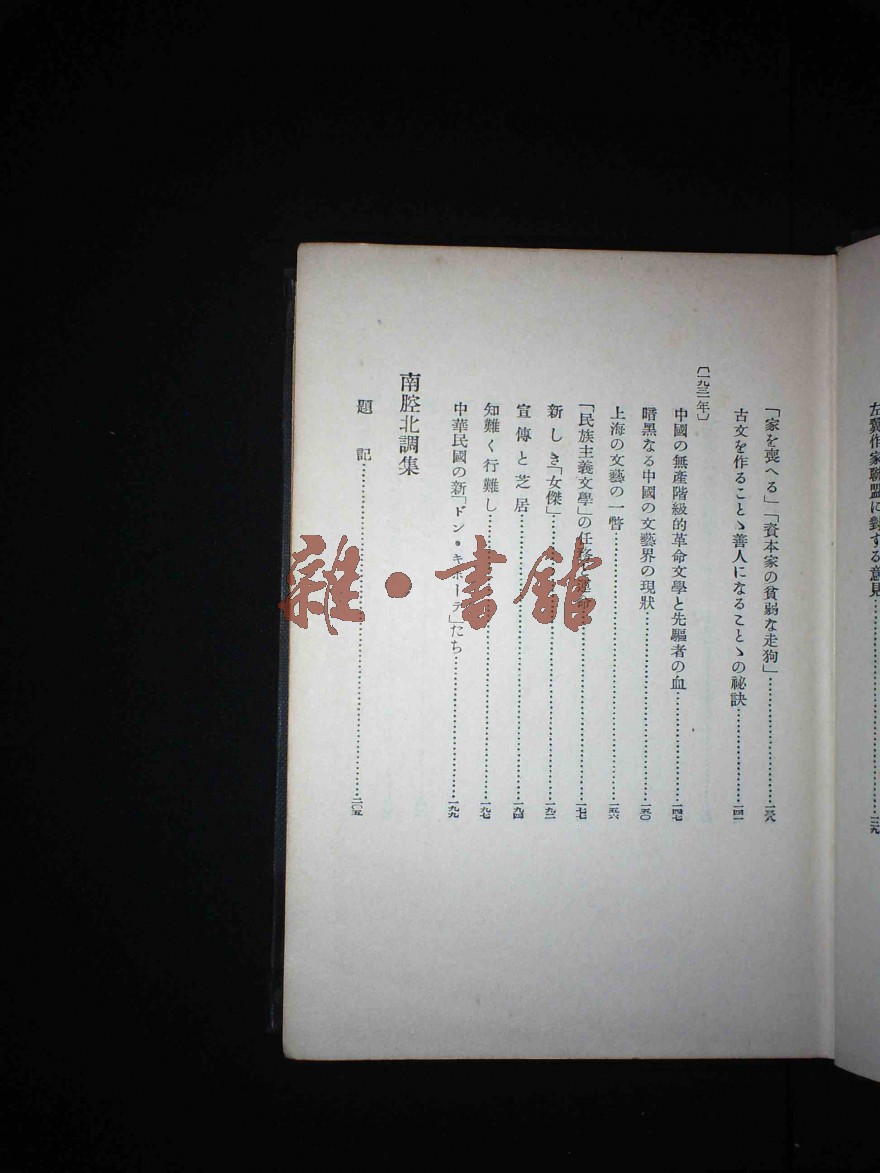 左翼作家聯盟に對する意見…………一二九
「家を喪へる」「資本家の貧弱な走狗」…………一三八
古文を作ることゝ善人になることゝの祕訣…………一四一
〔一九三一年〕
中國の無產階級的革命文學と先驅者の血…………一四七
暗黑なる中國の文藝界の現狀…………一五〇
上海の文藝の一瞥…………一五六
「民族主義文學」の任務と運命…………一七七
新しき「女傑」…………一九二
宣傳と芝居…………一九四
知難く行難し…………一九七
中華民國の新「ドン・キホーテ」たち…………一九九
南腔北調集
題記…………二〇五
雜・書館